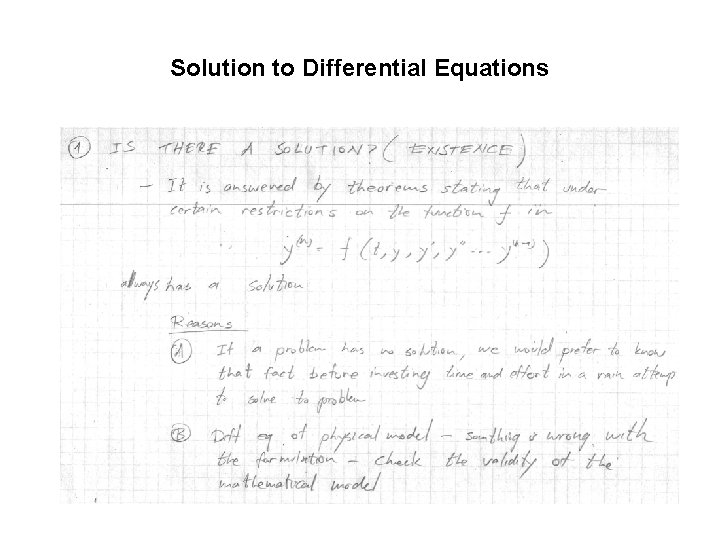 Solution to Differential Equations
① IS THERE A SOLUTION? (EXISTENCE)
- It is answered by theorems stating that under
certain restrictions on the function f in
y⁽ⁿ⁾ = f (t, y, y', y'' ... y⁽ⁿ⁻¹⁾)
always has a solution
Reasons
Ⓐ If a problem has no solution, we would prefer to know
that fact before investing time and effort in a vain attemp
to solve to problem
Ⓑ Diff eq. of physical model - somthing is wrong with
the formulation - check the validity of the
mathematical model